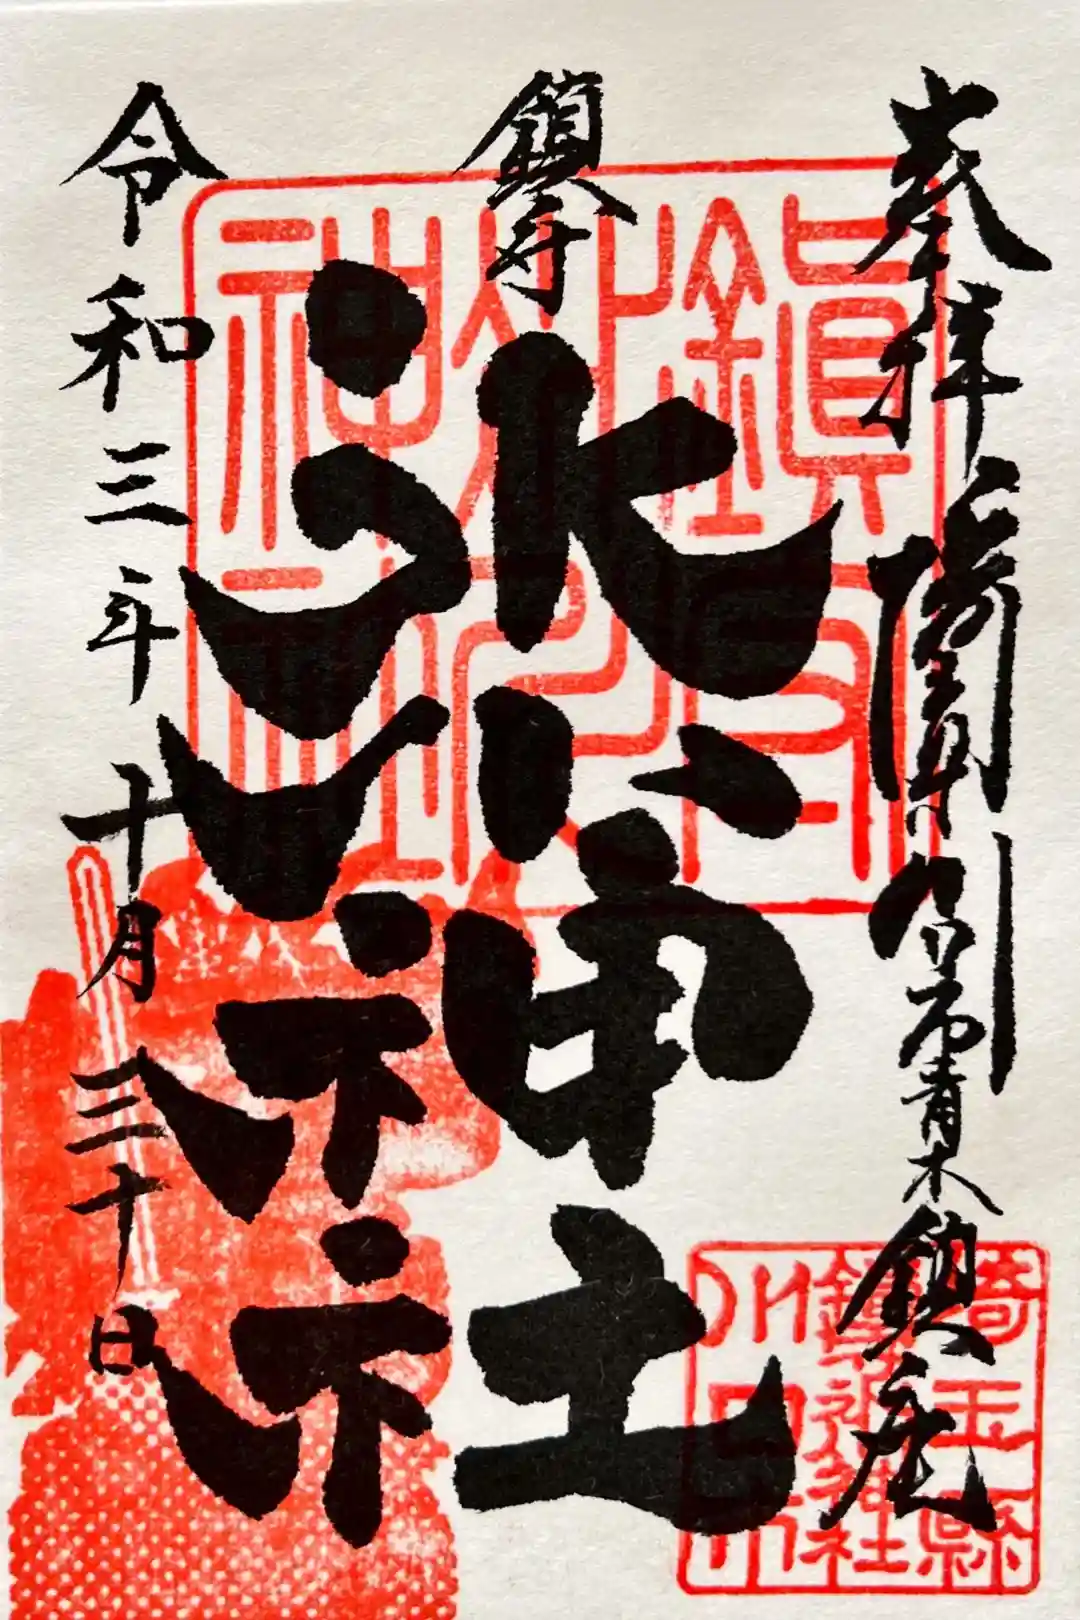 奉拝 埼玉縣川口市青木鎮座
鎮守
氷川神社
令和三年十月三十日
鎮守
氷川
神社
埼玉縣
鎮守氷川神社
川口市